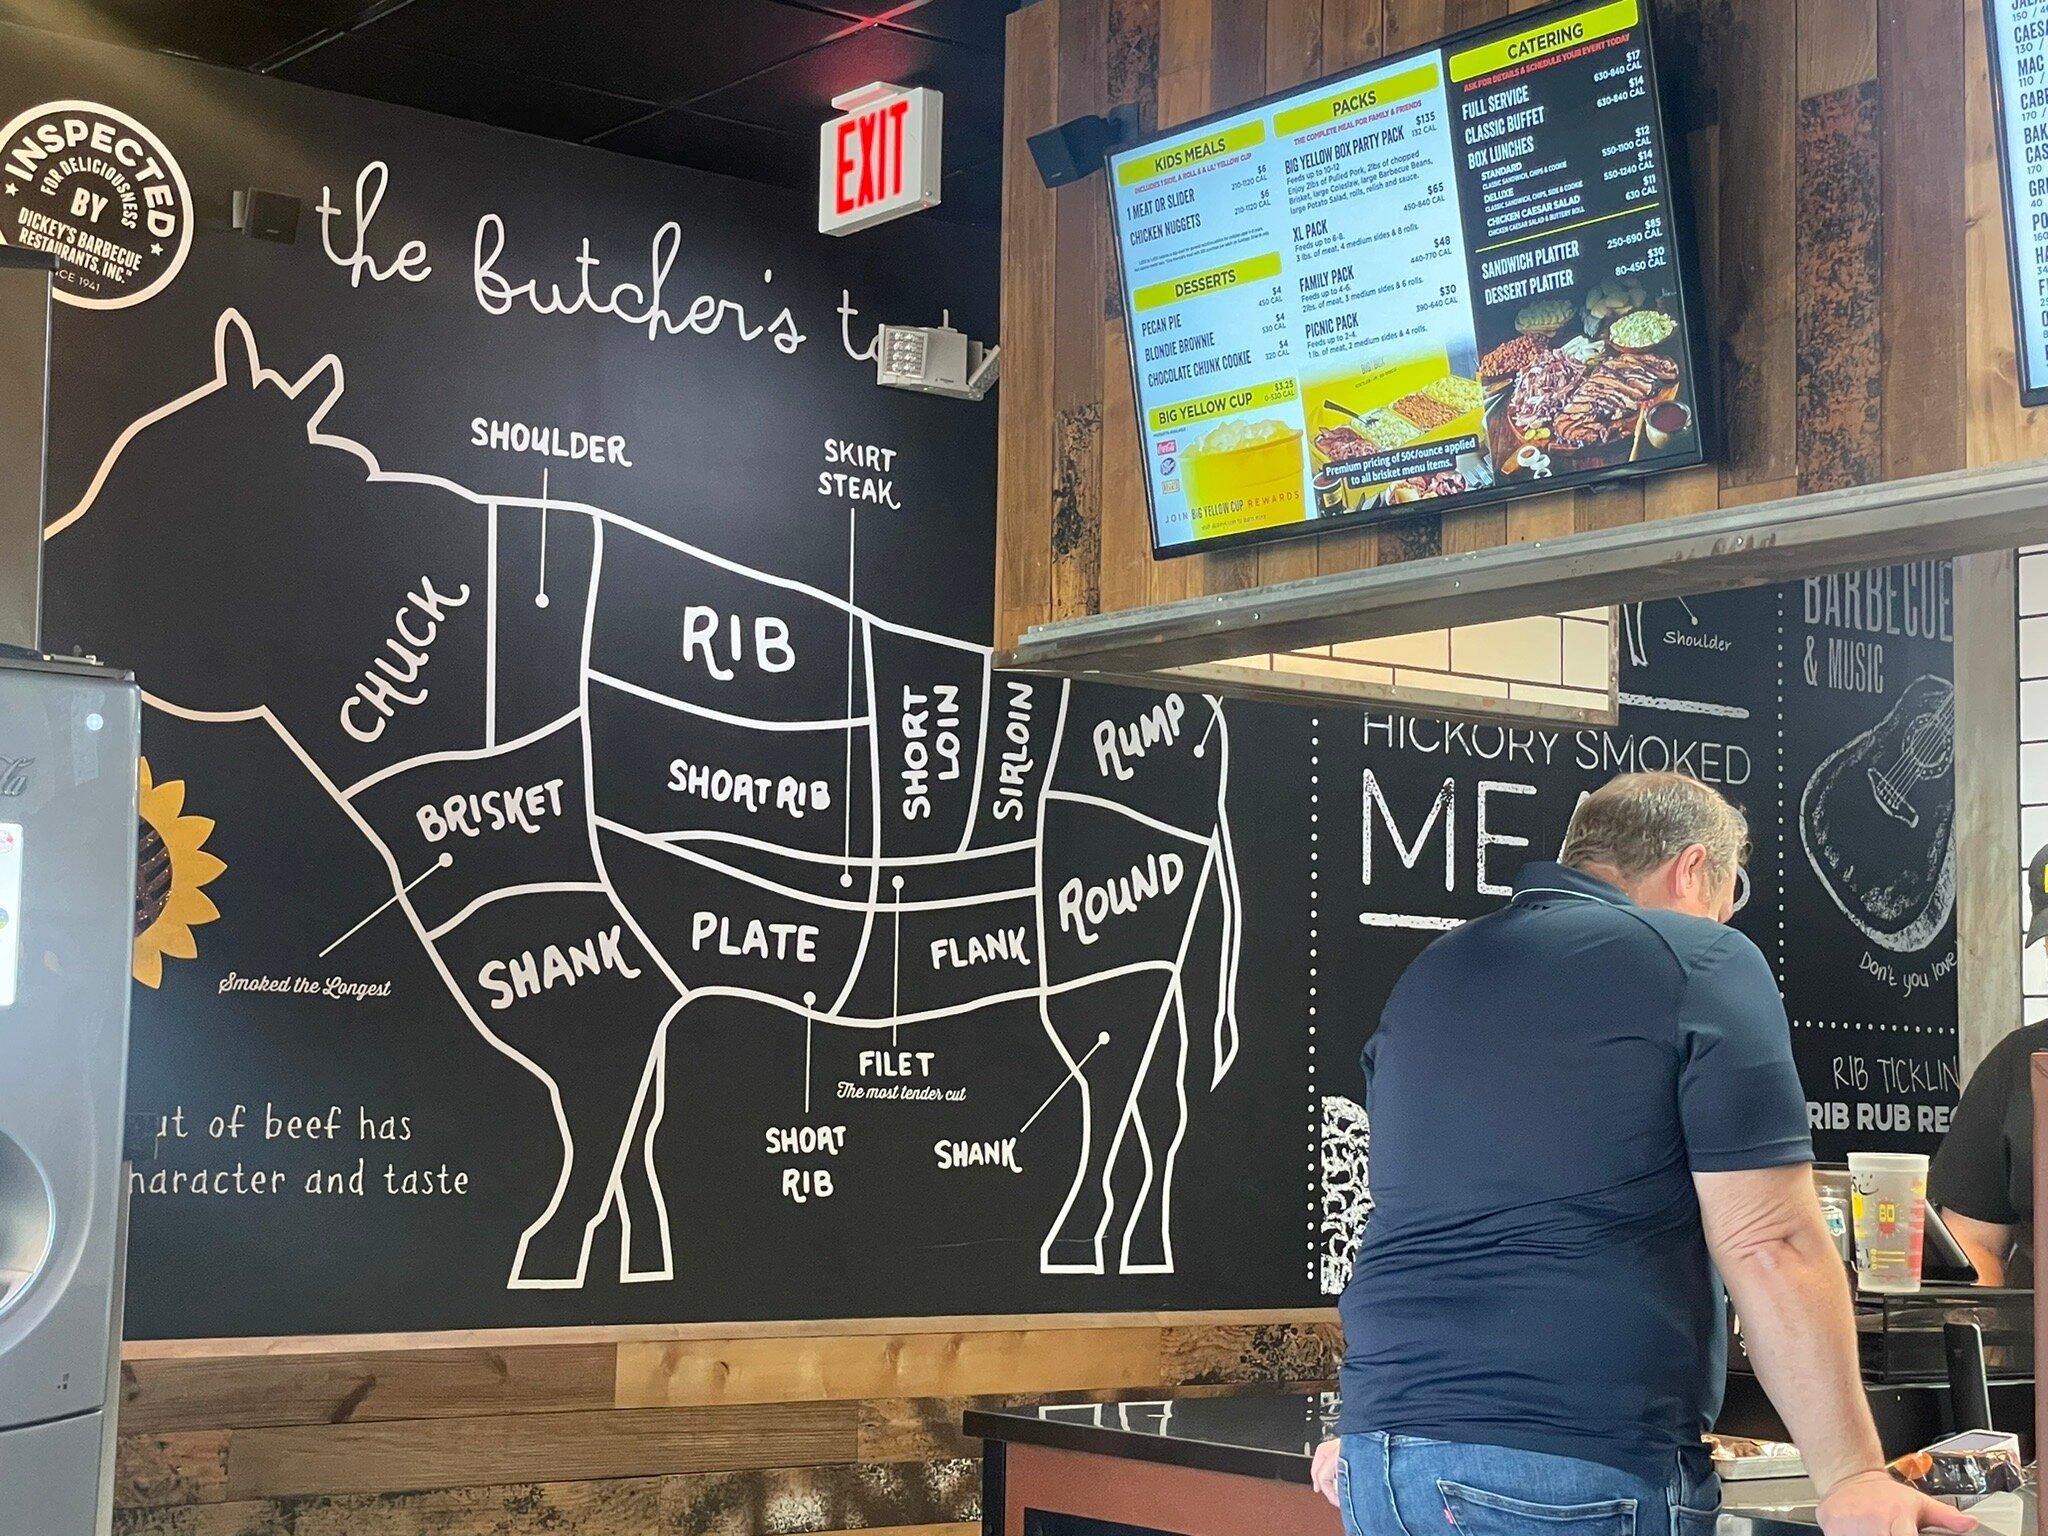 INSPECTED
FOR DELICIOUSNESS
BY
DICKEY'S BARBECUE
RESTAURANTS, INC.
CE 1941
the butcher's
EXIT
SHOULDER
SKIRT
STEAK
CHUCK
RIB
SHORT RIB
SHORT
LOIN
SIRLOIN
RUMP
BRISKET
Smoked the Longest
SHANK
PLATE
FLANK
ROUND
FILET
The most tender cut
SHORT
RIB
SHANK
of beef has
and taste
KIDS MEALS
INCLUDES 1 SIDE, A ROLL & A LIL' YELLOW CUP
1 MEAT OR SLIDER $6
210-1120 CAL
CHICKEN NUGGETS $6
210-1120 CAL
DESSERTS
PECAN PIE $4
450 CAL
BLONDIE BROWNIE $4
530 CAL
CHOCOLATE CHUNK COOKIE $4
320 CAL
BIG YELLOW CUP $3.25
0-530 CAL
JOIN BIG YELLOW CUP REWARDS
PACKS
THE COMPLETE MEAL FOR FAMILY & FRIENDS
BIG YELLOW BOX PARTY PACK $135
132 CAL
Feeds up to 10-12
Enjoy 2lbs of Pulled Pork, 2lbs of chopped
Brisket, large Coleslaw, large Barbecue Beans,
large Potato Salad, rolls, relish and sauce.
XL PACK $65
450-840 CAL
Feeds up to 6-8.
3 lbs. of meat, 4 medium sides & 8 rolls.
FAMILY PACK $48
440-770 CAL
Feeds up to 4-6.
2lbs. of meat, 3 medium sides & 6 rolls.
PICNIC PACK $30
390-640 CAL
Feeds up to 2-4.
1 lb. of meat, 2 medium sides & 4 rolls.
Premium pricing of 50¢/ounce applied
to all brisket menu items.
CATERING
ASK FOR DETAILS & SCHEDULE YOUR EVENT TODAY
FULL SERVICE $17
630-840 CAL
CLASSIC BUFFET $14
630-840 CAL
BOX LUNCHES
STANDARD $12
CLASSIC SANDWICH, CHIPS & COOKIE 550-1100 CAL
DELUXE $14
CLASSIC SANDWICH, CHIPS, SIDE & COOKIE 550-1240 CAL
CHICKEN CAESAR SALAD $11
CHICKEN CAESAR SALAD & BUTTERY ROLL 630 CAL
SANDWICH PLATTER $85
250-690 CAL
DESSERT PLATTER $30
80-450 CAL
150 /
CAES
130 /
MAC
110 /
CAB
170 /
BAK
CAS
170
GR
40
PO
160
Shoulder
BARBECUE
& MUSIC
HICKORY SMOKED
ME
Don't you love
RIB TICKLIN
RIB RUB RE